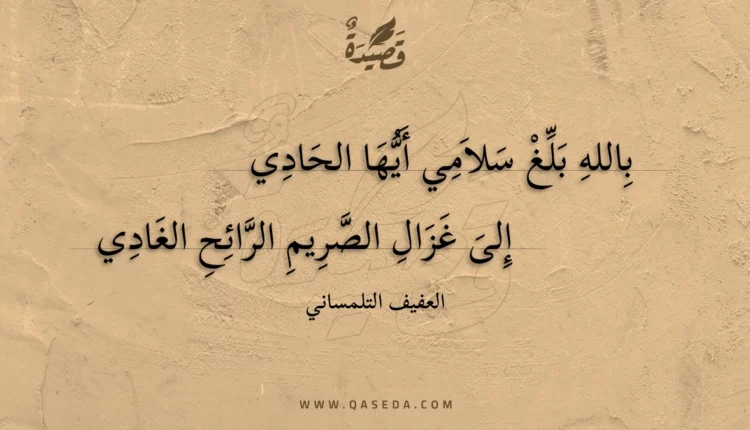 قَصِيْدَةٌ
بِاللهِ بَلِّغْ سَلاَمِي أَيُّهَا الحَادِي
إِلىَ غَزَالِ الصَّرِيمِ الرَّائِحِ الغَادِي
العفيف التلمساني
WWW.QASEDA.COM